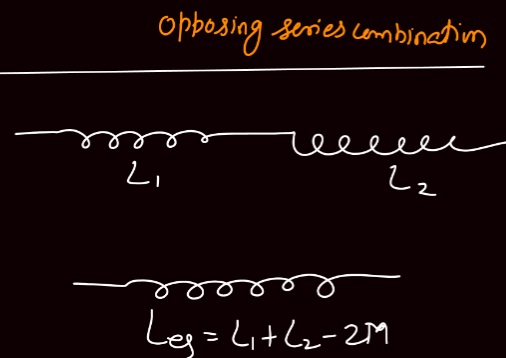 Opposing series combination
L₁
L₂
Leq = L₁ + L₂ - 2M